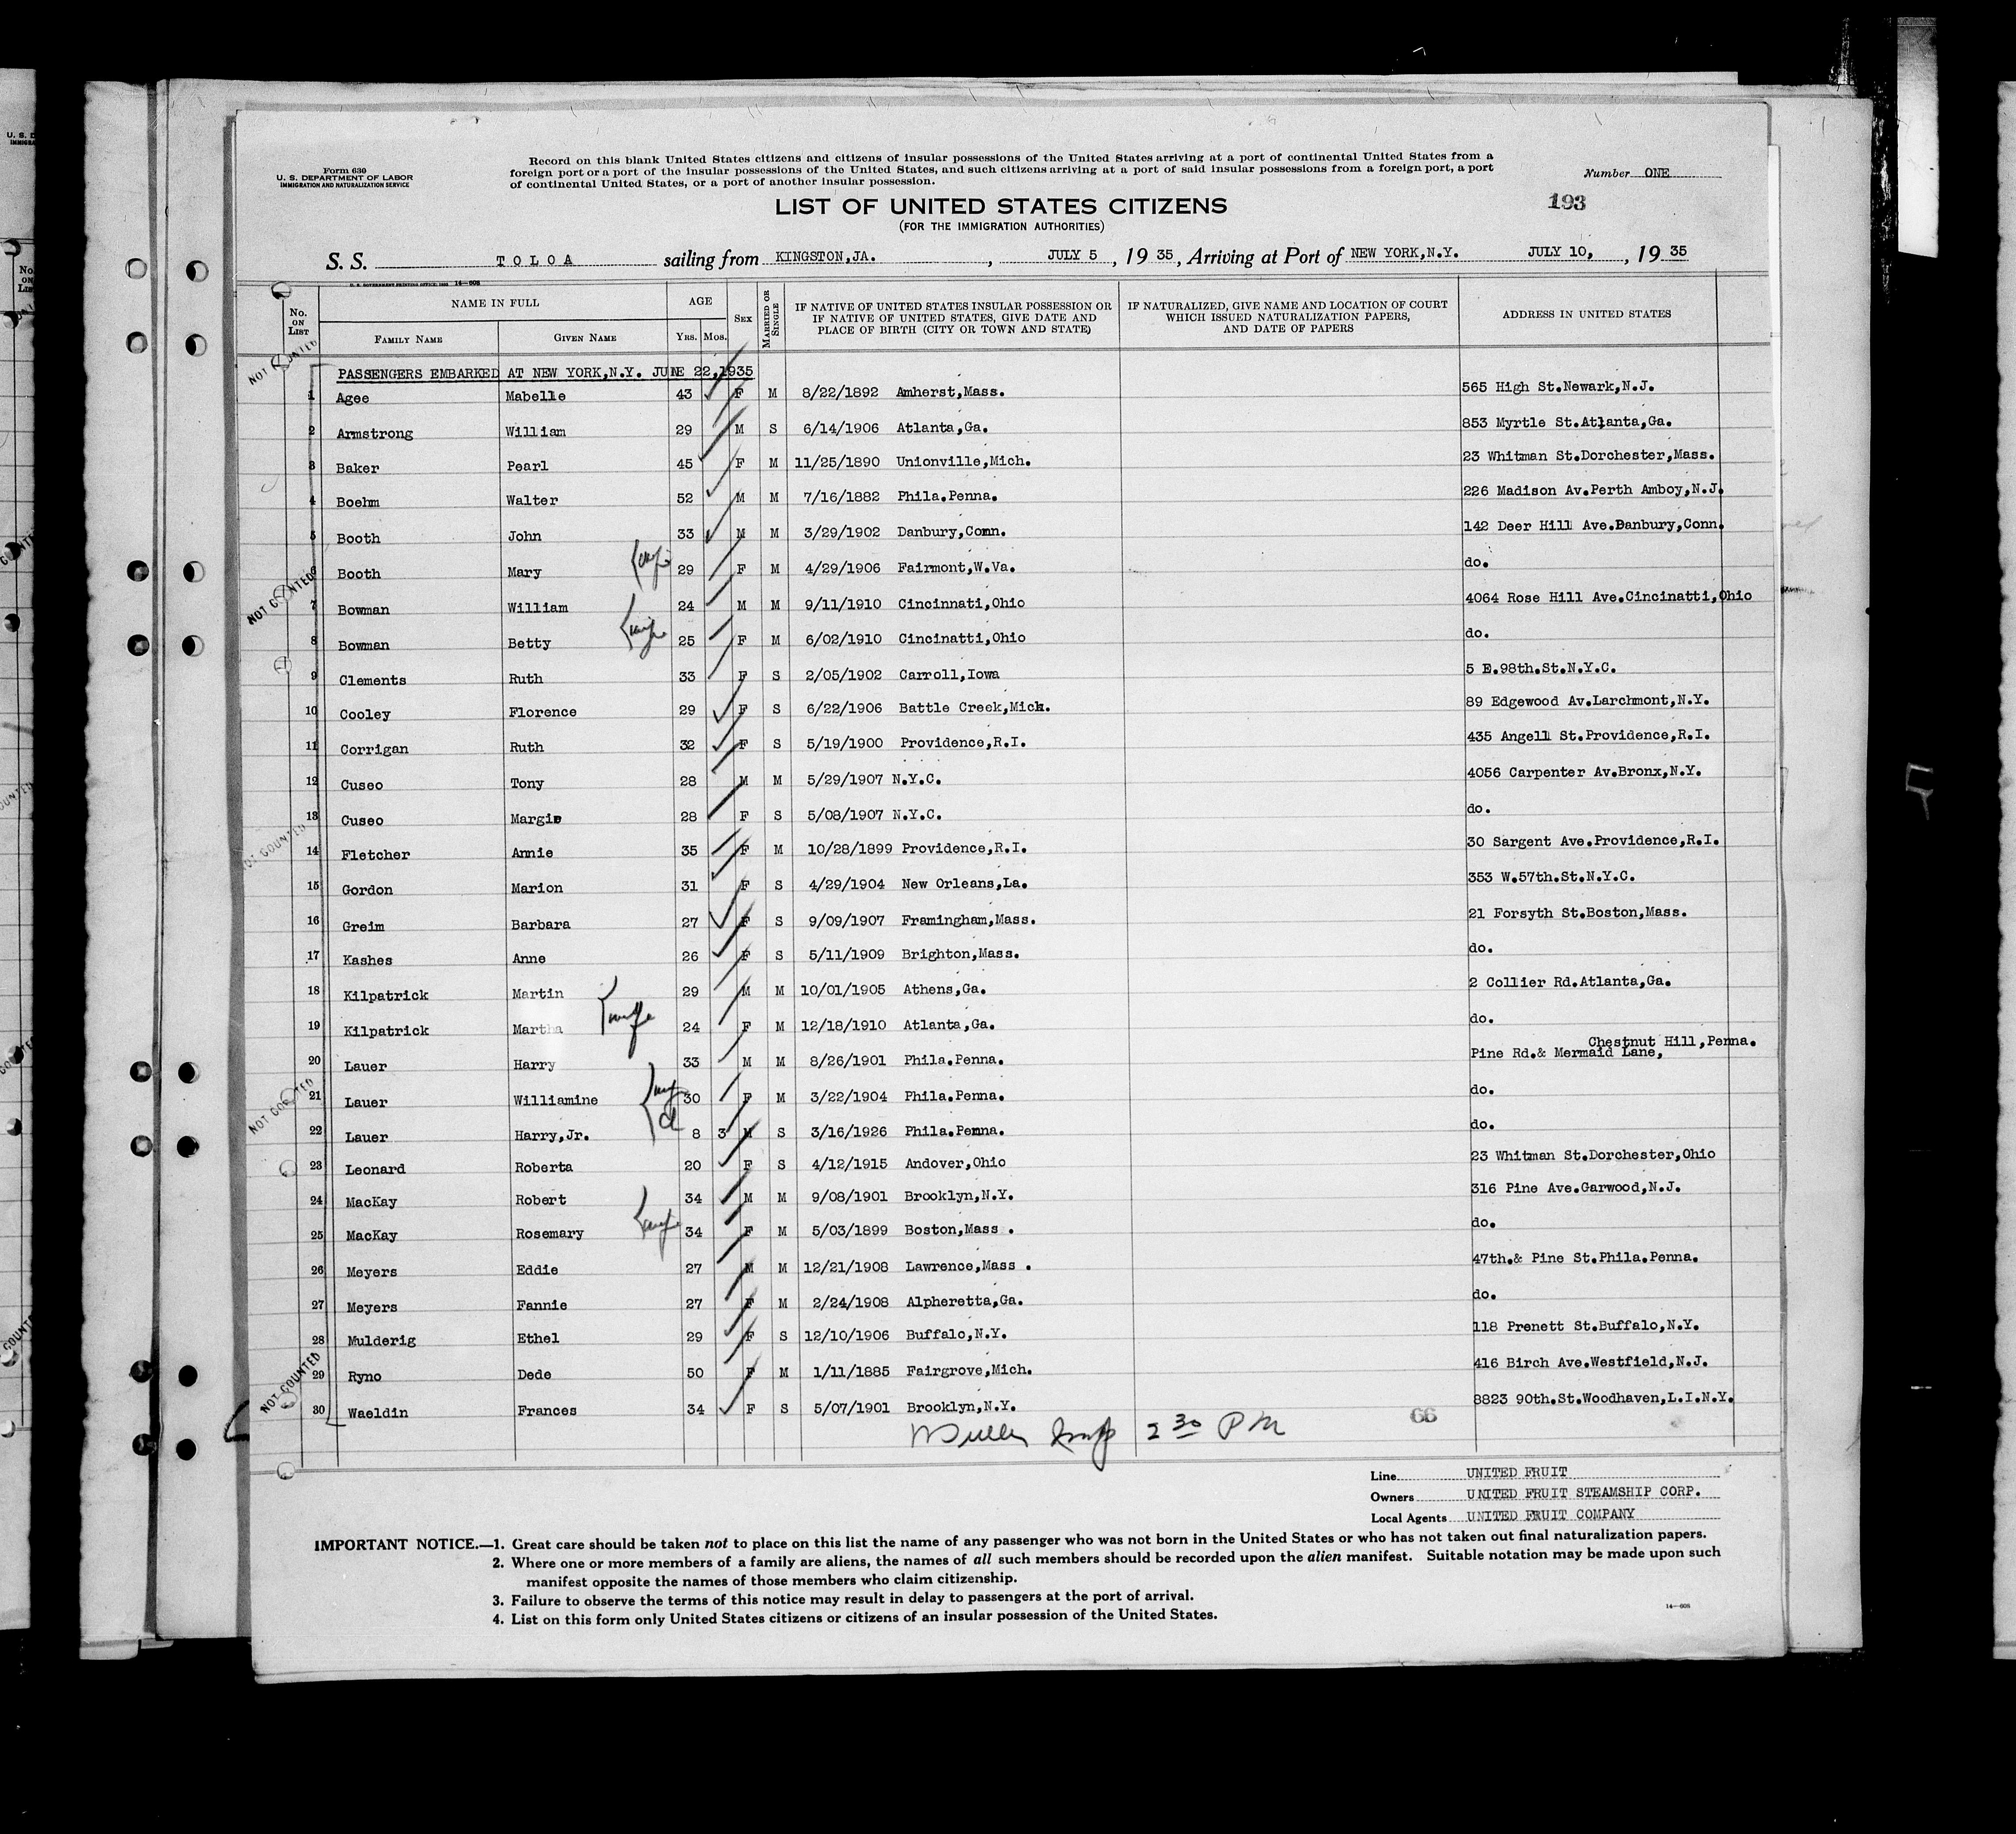 Form 630
U. S. DEPARTMENT OF LABOR
IMMIGRATION AND NATURALIZATION SERVICE
Record on this blank United States citizens and citizens of insular possessions of the United States arriving at a port of continental United States from a
foreign port or a port of the insular possessions of the United States, and such citizens arriving at a port of said insular possessions from a foreign port, a port
of continental United States, or a port of another insular possession.
Number ONE
193
LIST OF UNITED STATES CITIZENS
(FOR THE IMMIGRATION AUTHORITIES)
S. S. TOLOA sailing from KINGSTON,JA. , JULY 5 , 19 35, Arriving at Port of NEW YORK,N.Y. JULY 10, , 19 35
U. S. GOVERNMENT PRINTING OFFICE: 14—608
No. ON LIST
NAME IN FULL
FAMILY NAME GIVEN NAME
AGE
Yrs. Mos.
SEX
MARRIED OR SINGLE
IF NATIVE OF UNITED STATES INSULAR POSSESSION OR
IF NATIVE OF UNITED STATES, GIVE DATE AND
PLACE OF BIRTH (CITY OR TOWN AND STATE)
IF NATURALIZED, GIVE NAME AND LOCATION OF COURT
WHICH ISSUED NATURALIZATION PAPERS,
AND DATE OF PAPERS
ADDRESS IN UNITED STATES
PASSENGERS EMBARKED AT NEW YORK,N.Y. JUNE 22,1935
1 Agee Mabelle 43 F M 8/22/1892 Amherst,Mass. 565 High St.Newark,N.J.
2 Armstrong William 29 M S 6/14/1906 Atlanta,Ga. 853 Myrtle St.Atlanta,Ga.
3 Baker Pearl 45 F M 11/25/1890 Unionville,Mich. 23 Whitman St.Dorchester,Mass.
4 Boehm Walter 52 M M 7/16/1882 Phila.Penna. 226 Madison Av.Perth Amboy,N.J.
5 Booth John 33 M M 3/29/1902 Danbury,Conn. 142 Deer Hill Ave.Danbury,Conn.
6 Booth Mary wife 29 F M 4/29/1906 Fairmont,W.Va. do.
7 Bowman William 24 M M 9/11/1910 Cincinnati,Ohio 4064 Rose Hill Ave.Cincinatti,Ohio
8 Bowman Betty wife 25 F M 6/02/1910 Cincinatti,Ohio do.
9 Clements Ruth 33 F S 2/05/1902 Carroll,Iowa 5 E.98th.St.N.Y.C.
10 Cooley Florence 29 F S 6/22/1906 Battle Creek,Mich. 89 Edgewood Av.Larchmont,N.Y.
11 Corrigan Ruth 32 F S 5/19/1900 Providence,R.I. 435 Angell St.Providence,R.I.
12 Cuseo Tony 28 M M 5/29/1907 N.Y.C. 4056 Carpenter Av.Bronx,N.Y.
13 Cuseo Margie 28 F S 5/08/1907 N.Y.C. do.
14 Fletcher Annie 35 F M 10/28/1899 Providence,R.I. 30 Sargent Ave.Providence,R.I.
15 Gordon Marion 31 F S 4/29/1904 New Orleans,La. 353 W.57th.St.N.Y.C.
16 Greim Barbara 27 F S 9/09/1907 Framingham,Mass. 21 Forsyth St.Boston,Mass.
17 Kashes Anne 26 F S 5/11/1909 Brighton,Mass. do.
18 Kilpatrick Martin 29 M M 10/01/1905 Athens,Ga. 2 Collier Rd.Atlanta,Ga.
19 Kilpatrick Martha wife 24 F M 12/18/1910 Atlanta,Ga. do.
Chestnut Hill,Penna.
20 Lauer Harry 33 M M 8/26/1901 Phila.Penna. Pine Rd.& Mermaid Lane,
21 Lauer Williamine wf 30 F M 3/22/1904 Phila.Penna. do.
22 Lauer Harry,Jr. Cl 8 3 M S 3/16/1926 Phila.Penna. do.
23 Leonard Roberta 20 F S 4/12/1915 Andover,Ohio 23 Whitman St.Dorchester,Ohio
24 MacKay Robert 34 M M 9/08/1901 Brooklyn,N.Y. 316 Pine Ave.Garwood,N.J.
25 MacKay Rosemary wife 34 F M 5/03/1899 Boston,Mass . do.
26 Meyers Eddie 27 M M 12/21/1908 Lawrence,Mass . 47th.& Pine St.Phila.Penna.
27 Meyers Fannie 27 F M 2/24/1908 Alpheretta,Ga. do.
28 Mulderig Ethel 29 F S 12/10/1906 Buffalo,N.Y. 118 Prenett St.Buffalo,N.Y.
29 Ryno Dede 50 F M 1/11/1885 Fairgrove,Mich. 416 Birch Ave.Westfield,N.J.
30 Waeldin Frances 34 F S 5/07/1901 Brooklyn,N.Y. 8823 90th.St.Woodhaven,L.I.N.Y.
NOT COUNTED
NOT COUNTED
NOT COUNTED
NOT COUNTED
NOT COUNTED
66
2 30 PM
Line UNITED FRUIT
Owners UNITED FRUIT STEAMSHIP CORP.
Local Agents UNITED FRUIT COMPANY
IMPORTANT NOTICE.—1. Great care should be taken not to place on this list the name of any passenger who was not born in the United States or who has not taken out final naturalization papers.
2. Where one or more members of a family are aliens, the names of all such members should be recorded upon the alien manifest. Suitable notation may be made upon such
manifest opposite the names of those members who claim citizenship.
3. Failure to observe the terms of this notice may result in delay to passengers at the port of arrival.
4. List on this form only United States citizens or citizens of an insular possession of the United States.
14—608